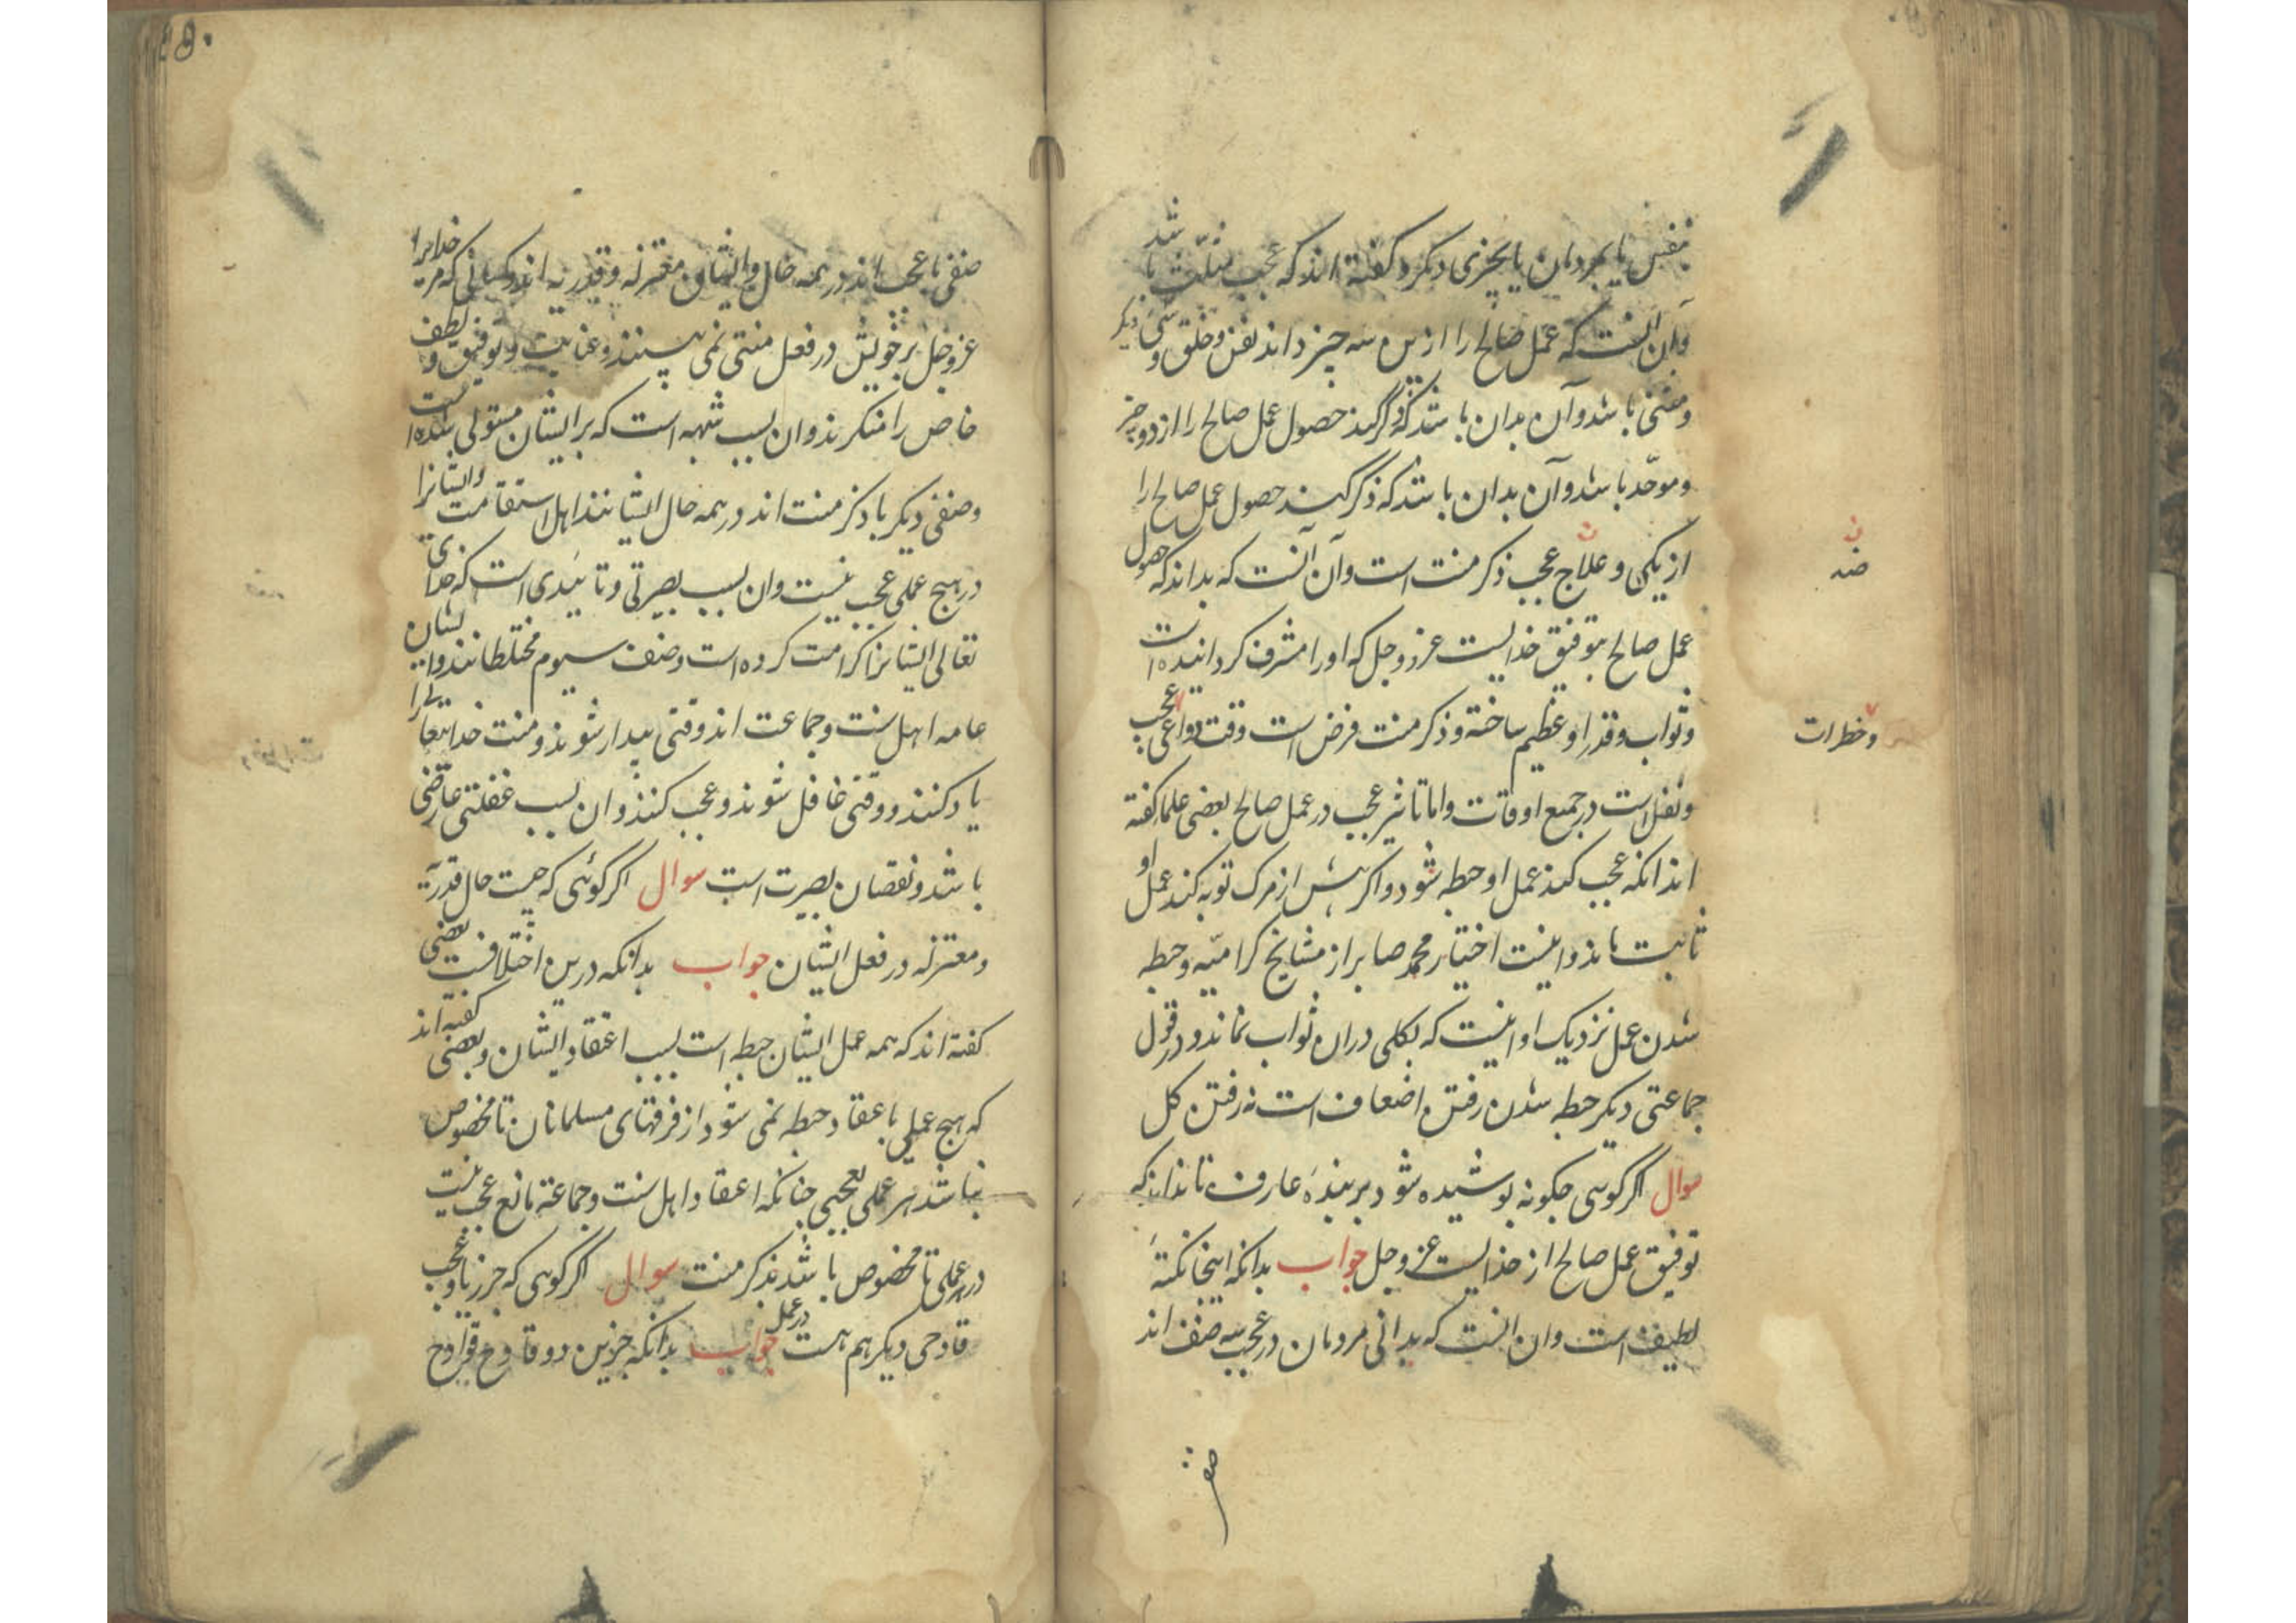 بنفس یا بمردمان یا بچیزی دیکر و کفته اند که عجب مثلث باشد
و آن آنست که عمل صالح را ازین سه چیز داند نفس و خلق و شی دیکر
و مثنی باشد و آن بدان باشد که ذکر کند حصول عمل صالح را از دو چیز
و موحّد باشد و آن بدان باشد که ذکر کند حصول عمل صالح را
از یکی و علاج عجب ذکر منت است و آن آنست که بداند که حصول
عمل صالح بتوفیق خدایست عزّ و جل که او را مشرف کردانیده است
و ثواب و قدر او عظیم ساخته و ذکر منت فرض است وقت دواعی عجب
و نفل است در جمیع اوقات و اما تاثیر عجب در عمل صالح بعضی علما کفته
اند انکه عجب کند عمل او حبطه شود و اکر پیش از مرک توبه کند عمل او
ثابت ماند و اینست اختیار محمد صابر از مشایخ کرامیّه و حبطه
شدن عمل نزدیک او اینست که بکلی دران ثواب نماند و در قول
جماعتی دیکر حبطه شدن رفتن اضعاف است نه رفتن کل
سوال اکر کوئی چکونه پوشیده شود بر بندهٔ عارف تا نداند که
توفیق عمل صالح از خدایست عز و جل جواب بدانکه اینجا نکتهٔ
لطیف است و ان آنست که بدانی مردمان در عجب سه صنف اند
ضد
و خطرات
صنفی با عجب اند در همه حال و ایشان معتزله و قدریه اند و کسانی که مر خدایرا
عز و جل بر خویش در فعل منتی نمی بینند و عنایت و توفیق و لطف
خاص را منکرند و ان بسبب شبهه است که بر ایشان مستولی شده است
و صنفی دیکر با ذکر منت اند در همه حال ایشانند اهل استقامت و ایشانرا
در هیچ عملی عجب نیست و ان بسبب بصیرتی و تائیدی است که خدای
تعالی ایشانرا کرامت کرده است و صنف سیوم مختلطانند و ایشان
عامه اهل سنت و جماعت اند وقتی بیدار شوند و منت خدایتعالی را
یاد کنند و وقتی غافل شوند و عجب کنند و ان بسبب غفلتی عارضی
باشد و نقصان بصیرت است سوال اکر کوئی که چیست حال قدریّه
و معتزله در فعل ایشان جواب بدانکه درین اختلافست بعضی
کفته اند که همه عمل ایشان حبطه است بسبب اعتقاد ایشان و بعضی کفته اند
که هیچ عملی باعتقاد حبطه نمی شود از فرقهای مسلمانان تا مخصوص
نباشد هر عملی بعجبی چنانکه اعتقاد اهل سنت و جماعة مانع عجب نیست
در هر عملی تا مخصوص باشد بذکر منت سوال اکر کوئی که جز ریا و عجب
قادحی دیکر هم هست در عمل جواب بدانکه جزین دو قادح قوادح